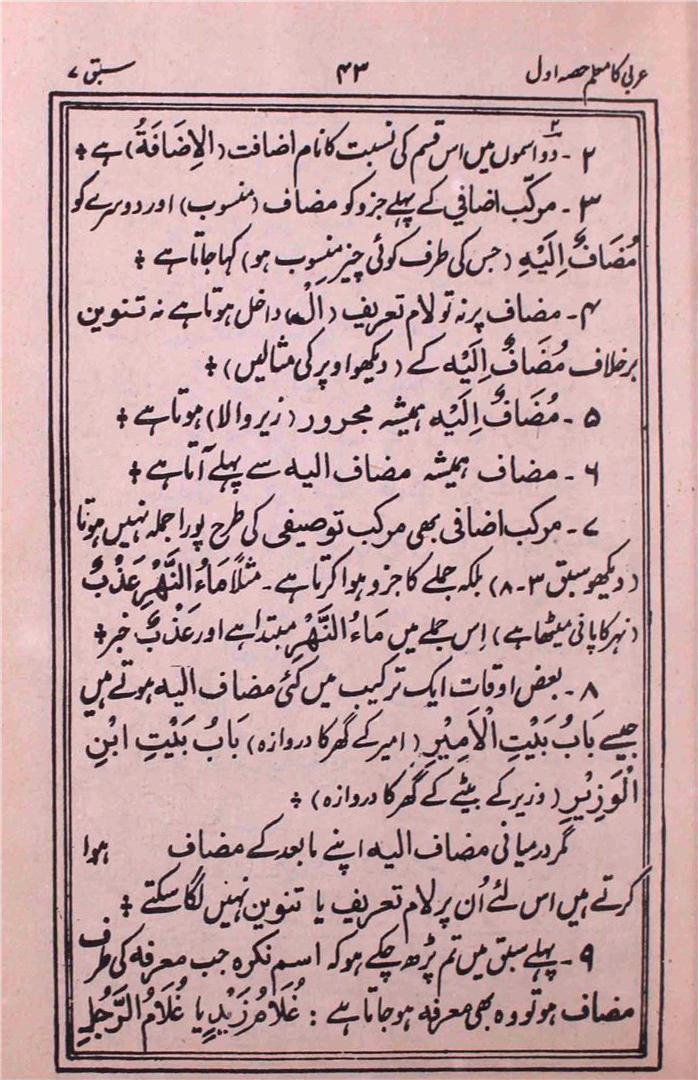 عربی کا معلم حصہ اول ۴۳ سبق ۷
۲۔ دو اسموں میں اس قسم کی نسبت کا نام اضافت (الْاِضَافَةُ) ہے ÷
۳۔ مرکّب اضافي کے پہلے جزو کو مضاف (منسوب) اور دوسرے کو
مُضَافٌ اِلَيْهِ (جس کی طرف کوئی چیز منسوب ہو) کہا جاتا ہے ÷
۴۔ مضاف پر نہ تو لام تعریف (اَلْ) داخل ہوتا ہے نہ تنوین
برخلاف مُضَافٌ اِلَيْه کے (دیکھو اوپر کی مثالیں) ÷
۵۔ مُضَافٌ اِلَيْه ہمیشہ مجرور (زیر والا) ہوتا ہے ÷
۶۔ مضاف ہمیشہ مضاف الیہ سے پہلے آتا ہے ÷
۷۔ مرکب اضافی بھی مرکب توصیفی کی طرح پورا جملہ نہیں ہوتا
(دیکھو سبق ۳-۸) بلکہ جملے کا جزو ہوا کرتا ہے۔ مثلًا مَاءُ النَّهْرِ عَذْبٌ
(نہر کا پانی میٹھا ہے) اِس جملے میں مَاءُ النَّهْرِ مبتدا ہے اور عَذْبٌ خبر ÷
۸۔ بعض اوقات ایک ترکیب میں کئی مضاف الیہ ہوتے ہیں
جیسے بَابُ بَيْتِ الْاَمِيْرِ (امیر کے گھر کا دروازہ) بَابُ بَيْتِ ابْنِ
الْوَزِيْرِ (وزیر کے بیٹے کے گھر کا دروازہ) ÷
مگر درمیانی مضاف الیہ اپنے مابعد کے مضاف ہوا
کرتے ہیں اس لئے اُن پر لام تعریف یا تنوین نہیں لگا سکتے ÷
۹۔ پہلے سبق میں تم پڑھ چکے ہو کہ اسم نکرہ جب معرفہ کی طرف
مضاف ہو تو وہ بھی معرفہ ہو جاتا ہے : غُلَامُ زَيْدٍ یا غُلَامُ الرَّجُلِ